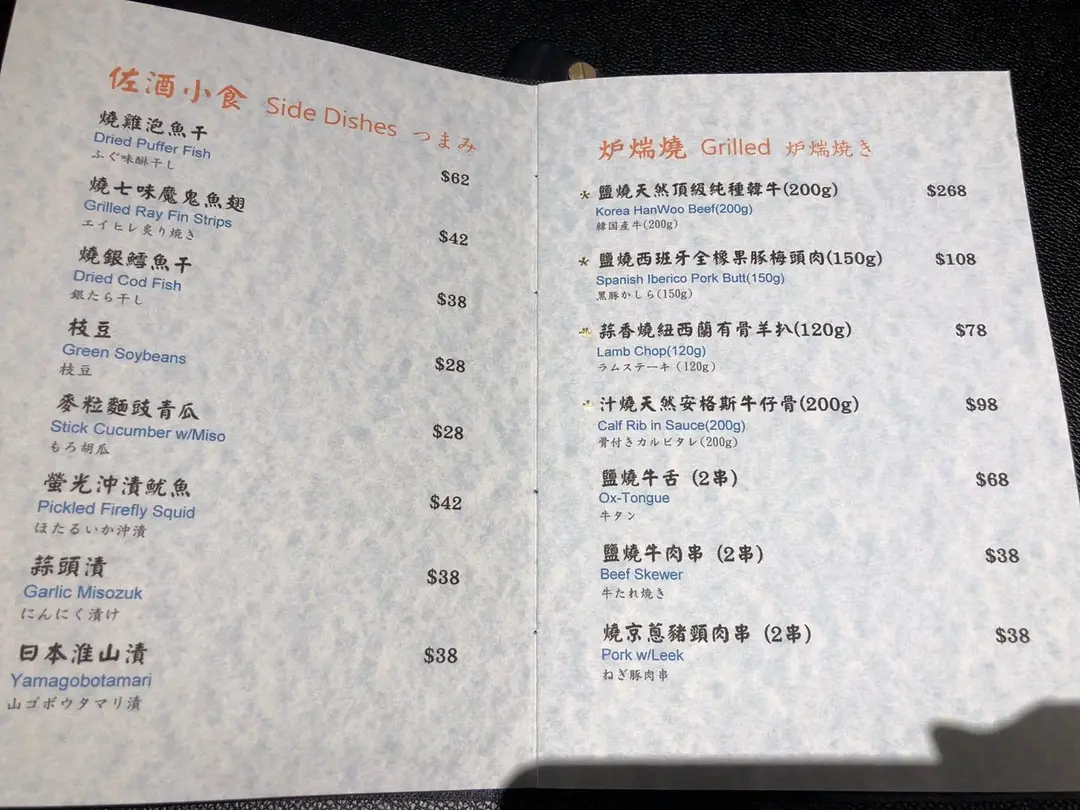 佐酒小食 Side Dishes つまみ
燒雞泡魚干
Dried Puffer Fish
ふぐ味醂干し
$62
燒七味魔鬼魚翅
Grilled Ray Fin Strips
エイヒレ炙り焼き
$42
燒銀鱈魚干
Dried Cod Fish
銀たら干し
$38
枝豆
Green Soybeans
枝豆
$28
麥粒麵豉青瓜
Stick Cucumber w/Miso
もろ胡瓜
$28
螢光沖漬魷魚
Pickled Firefly Squid
ほたるいか沖漬
$42
蒜頭漬
Garlic Misozuk
にんにく漬け
$38
日本淮山漬
Yamagobotamari
山ゴボウタマリ漬
$38
炉煓燒 Grilled 炉煓焼き
鹽燒天然頂級純種韓牛(200g) $268
Korea HanWoo Beef(200g)
韓国産牛(200g)
鹽燒西班牙全橡果豚梅頭肉(150g) $108
Spanish Iberico Pork Butt(150g)
黒豚かしら(150g)
蒜香燒紐西蘭有骨羊扒(120g) $78
Lamb Chop(120g)
ラムステーキ(120g)
汁燒天然安格斯牛仔骨(200g) $98
Calf Rib in Sauce(200g)
骨付きカルビタレ(200g)
鹽燒牛舌 (2串) $68
Ox-Tongue
牛タン
鹽燒牛肉串 (2串) $38
Beef Skewer
牛たれ焼き
燒京蔥豬頸肉串 (2串) $38
Pork w/Leek
ねぎ豚肉串